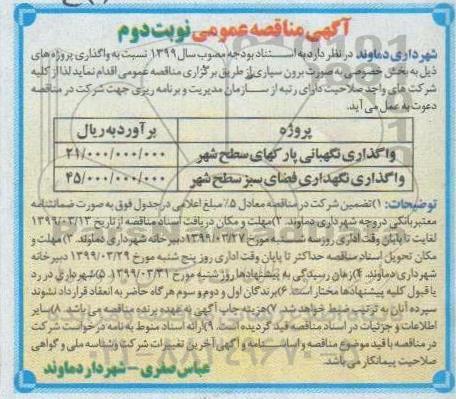 آگهی مناقصه عمومی نوبت دوم
شهرداری دماوند در نظر دارد به استناد بودجه مصوب سال ۱۳۹۹ نسبت به واگذاری پروژه های
ذیل به بخش خصوصی به صورت برون سپاری از طریق برگزاری مناقصه عمومی اقدام نماید لذا از کلیه
شرکت های واجد صلاحیت دارای رتبه از سازمان مدیریت و برنامه ریزی جهت شرکت در مناقصه
دعوت به عمل می آید.
پروژه برآورد به ریال
واگذاری نگهبانی پارکهای سطح شهر ۲۱/۰۰۰/۰۰۰/۰۰۰
واگذاری نگهداری فضای سبز سطح شهر ۴۵/۰۰۰/۰۰۰/۰۰۰
توضیحات: ۱) تضمین شرکت در مناقصه معادل ۵٪ مبلغ اعلامی در جدول فوق به صورت ضمانتنامه
معتبر بانکی در وجه شهرداری دماوند. ۲) مهلت و مکان دریافت اسناد مناقصه از تاریخ ۱۳۹۹/۰۳/۱۳
لغایت تا پایان وقت اداری روز سه شنبه مورخ ۱۳۹۹/۰۳/۲۷ دبیرخانه شهرداری دماوند. ۳) مهلت و
مکان تحویل اسناد مناقصه حداکثر تا پایان وقت اداری روز پنج شنبه مورخ ۱۳۹۹/۰۳/۲۹ دبیرخانه
شهرداری دماوند. ۴) زمان رسیدگی به پیشنهادها روز شنبه مورخ ۱۳۹۹/۰۳/۳۱. ۵) شهرداری در رد
یا قبول کلیه پیشنهادها مختار است. ۶) برندگان اول و دوم و سوم هرگاه حاضر به انعقاد قرارداد نشوند
سپرده آنان به ترتیب ضبط خواهد شد. ۷) هزینه چاپ آگهی به عهده برنده مناقصه می باشد. ۸) سایر
اطلاعات و جزئیات در اسناد مناقصه قید گردیده است. ۹) ارائه اسناد منوط به نامه درخواست شرکت
در مناقصه با قید موضوع مناقصه و اساسنامه و آگهی آخرین تغییرات شرکت و شناسه ملی و گواهی
صلاحیت پیمانکار می باشد.
عباس صفری - شهردار دماوند